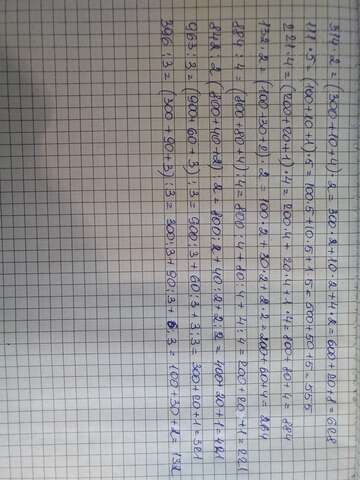 314·2 = (300+10+4)·2 = 300·2+10·2+4·2=600+20+8=628
111·5 = (100+10+1)·5=100·5+10·5+1·5=500+50+5=555
221·4 = (200+20+1)·4=200·4+20·4+1·4=800+80+4=884
132·2 = (100+30+2)·2 = 100·2+30·2+2·2=200+60+4=264
884:4 = (800+80+4):4=800:4+80:4+4:4=200+20+1=221
842:2 = (800+40+2):2=800:2+40:2+2:2=400+20+1=421
963:3 = (900+60+3):3=900:3+60:3+3:3=300+20+1=321
396:3 = (300+90+3):3=300:3+90:3+6:3=100+30+2=132